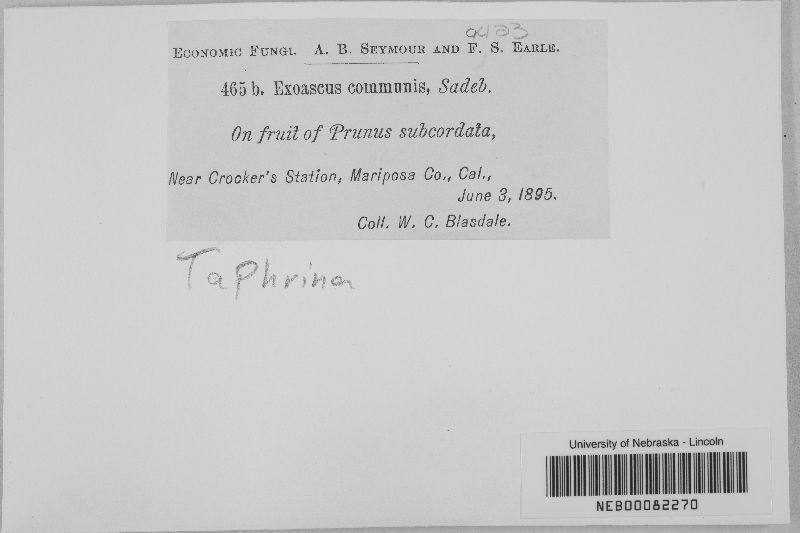 Economic Fungi. A. B. Seymour and F. S. Earle.
465 b. Exoascus communis, Sadeb.
On fruit of Prunus subcordata,
Near Crocker's Station, Mariposa Co., Cal.,
June 3, 1895.
Coll. W. C. Blasdale.
Taphrina
University of Nebraska - Lincoln
NEB00082270